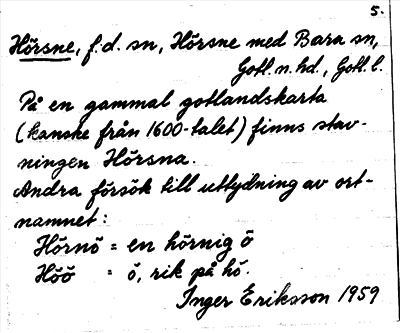 5.
Hörsne, f.d. sn, Hörsne med Bara sn,
Gotl. n. hd., Gotl. l.
På en gammal gotlandskarta
(kanske från 1600-talet) finns stav-
ningen Hörsna.
Andra försök till uttydning av ort-
namnet:
Hörnö = en hörnig ö
Höö = ö, rik på hö.
Inger Eriksson 1959